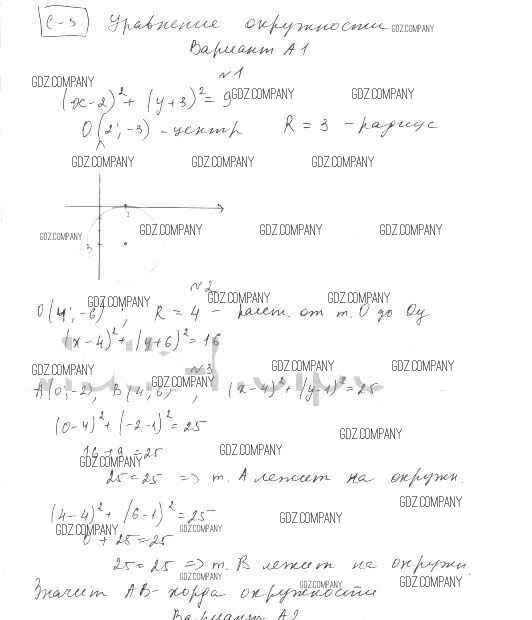 С-3 Уравнение окружности GDZ.COMPANY
Вариант А1
GDZ.COMPANY №1
(x-2)² + (y+3)² = 9 GDZ.COMPANY GDZ.COMPANY
O(2; -3) - центр R = 3 - радиус
GDZ.COMPANY GDZ.COMPANY GDZ.COMPANY
2
GDZ.COMPANY 3 GDZ.COMPANY GDZ.COMPANY GDZ.COMPANY
№2
GDZ.COMPANY GDZ.COMPANY GDZ.COMPANY
O(4; -6); R = 4 - расст. от т. O до Oy
(x-4)² + (y+6)² = 16
GDZ.COMPANY №3 GDZ.COMPANY GDZ.COMPANY
GDZ.COMPANY
A(0; -2), B(4; 6), (x-4)² + (y-1)² = 25
(0-4)² + (-2-1)² = 25
GDZ.COMPANY
16 + 9 = 25 GDZ.COMPANY
GDZ.COMPANY
25 = 25 => т. A лежит на окружн.
GDZ.COMPANY
(4-4)² + (6-1)² = 25 GDZ.COMPANY
GDZ.COMPANY GDZ.COMPANY
0 + 25 = 25
25 = 25 => т. B лежит на окружн
GDZ.COMPANY GDZ.COMPANY GDZ.COMPANY
Значит AB - хорда окружности
Вариант А2